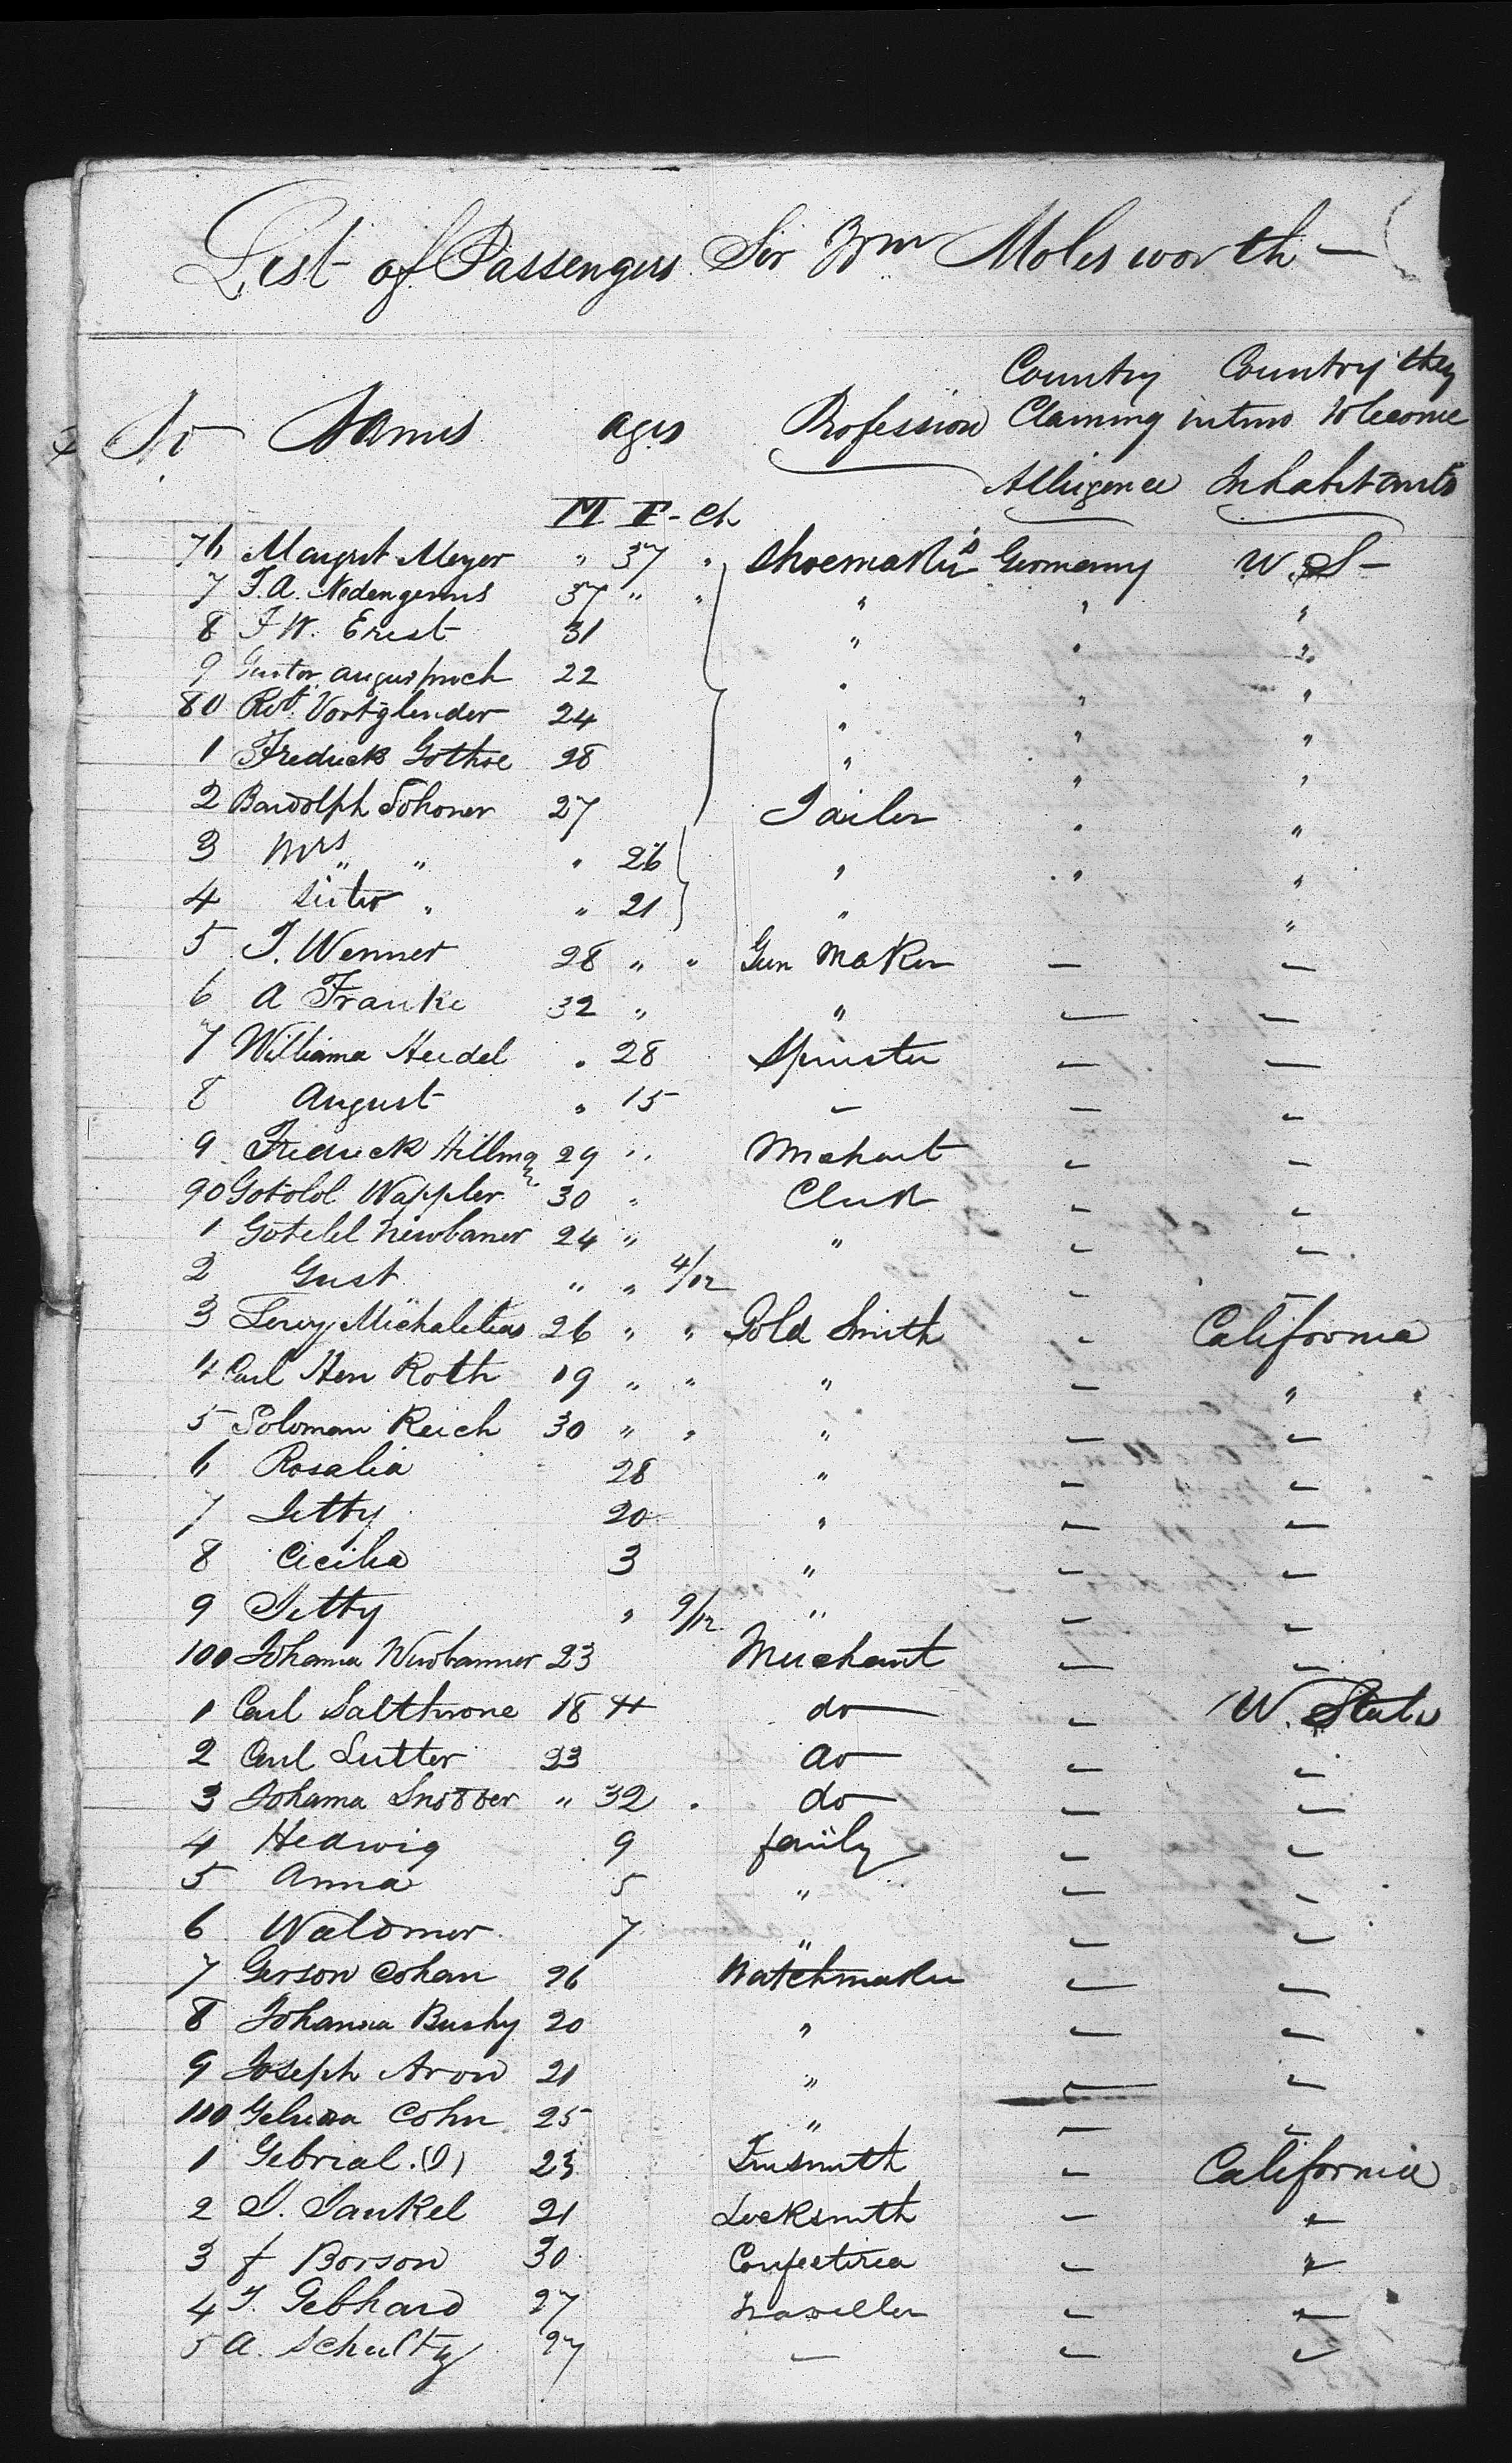 List of Passengers Sir Wm Molesworth —
Country Country they
No Names ages Profession Claming intend to become
Allegence Inhabitants
M F - Ch
76 Margret Meyer " 37 " Shoemaker Germany U. S -
7 F. A. Nedengerns 37 " " " " "
8 F W. Erest 31 " " "
9 22 " " "
80 Robt. Vortglender 24 " " "
1 Fredrick Gothoe 28 " " "
2 Bandolph Sohoner 27 Tailor " "
3 Mrs " " " 26 " " "
4 Sister " " 21 " " "
5 J. Wenner 28 " " Gun Maker — —
6 A Franke 32 " " — —
7 Williama Heidel " 28 Spinster — —
8 August " 15 - — -
9 Fredrick Hillman 29 " Merchant - -
90 Gotolol Wappler 30 " Clerk - -
1 Gotelel Newbaner 24 " " - -
2 Gust " " 4/12 - -
3 Lewy Michaletias 26 " " Gold Smith - California
4 Carl Hen Roth 19 " " " - "
5 Soloman Reich 30 " " " - -
6 Rosalia 28 " - -
7 Jetty 20 " - -
8 Cicilia 3 " - -
9 Jetty " 9/12 " - -
100 Johanna Newbanner 23 Merchant - -
1 Carl Salthrone 18 do - U. States
2 Carl Lutter 23 do - -
3 Johanna Snobber " 32 " do - -
4 Hedwig 9 family - -
5 Anna 5 " - -
6 Waldmor 7 " - -
7 Gerson Cohan 26 Watchmaker — -
8 Johanna Bushy 20 " - -
9 Joseph Aron 21 " — -
100 Cohn 25 " — -
1 Gebrial. (J) 23 Tinsmith - California
2 S. Sankel 21 Locksmith - "
3 f Borson 30 Confectirea - "
4 J. Gebhard 27 Traveller - "
5 A. Schultz 27 — - -